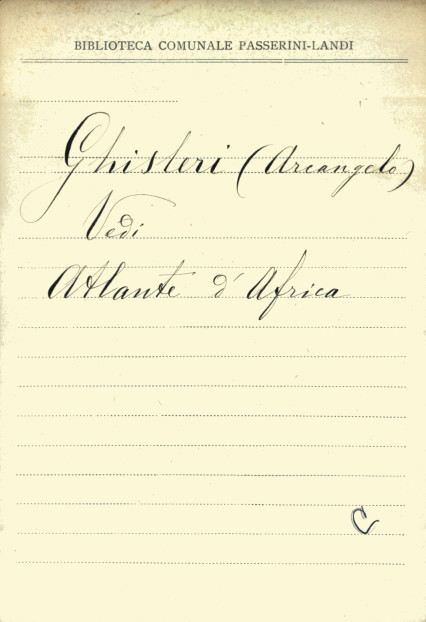 BIBLIOTECA COMUNALE PASSERINI-LANDI
Ghisleri (Arcangelo)
Vedi
Atlante d'Africa
C